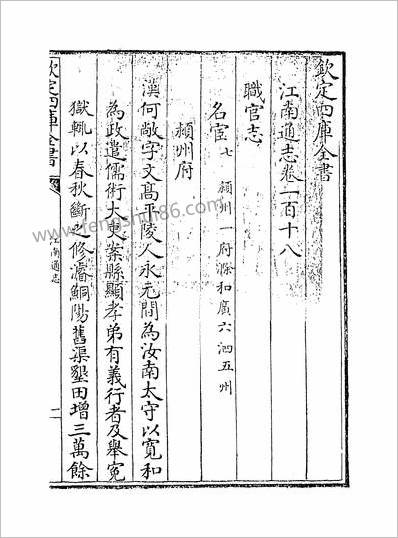 欽定四庫全書
江南通志卷一百十八
職官志
名宦七 潁州一府滁和廣六泗五州
潁州府
漢何敞字文髙平陵人永元間為汝南太守以寛和
為政遣儒術大吏案縣顯孝弟有義行者及舉寃
獄輒以春秋斷之修濬鮦陽舊渠墾田增三萬餘
欽定四庫全書
江南通志
一
www.fengshui86.com